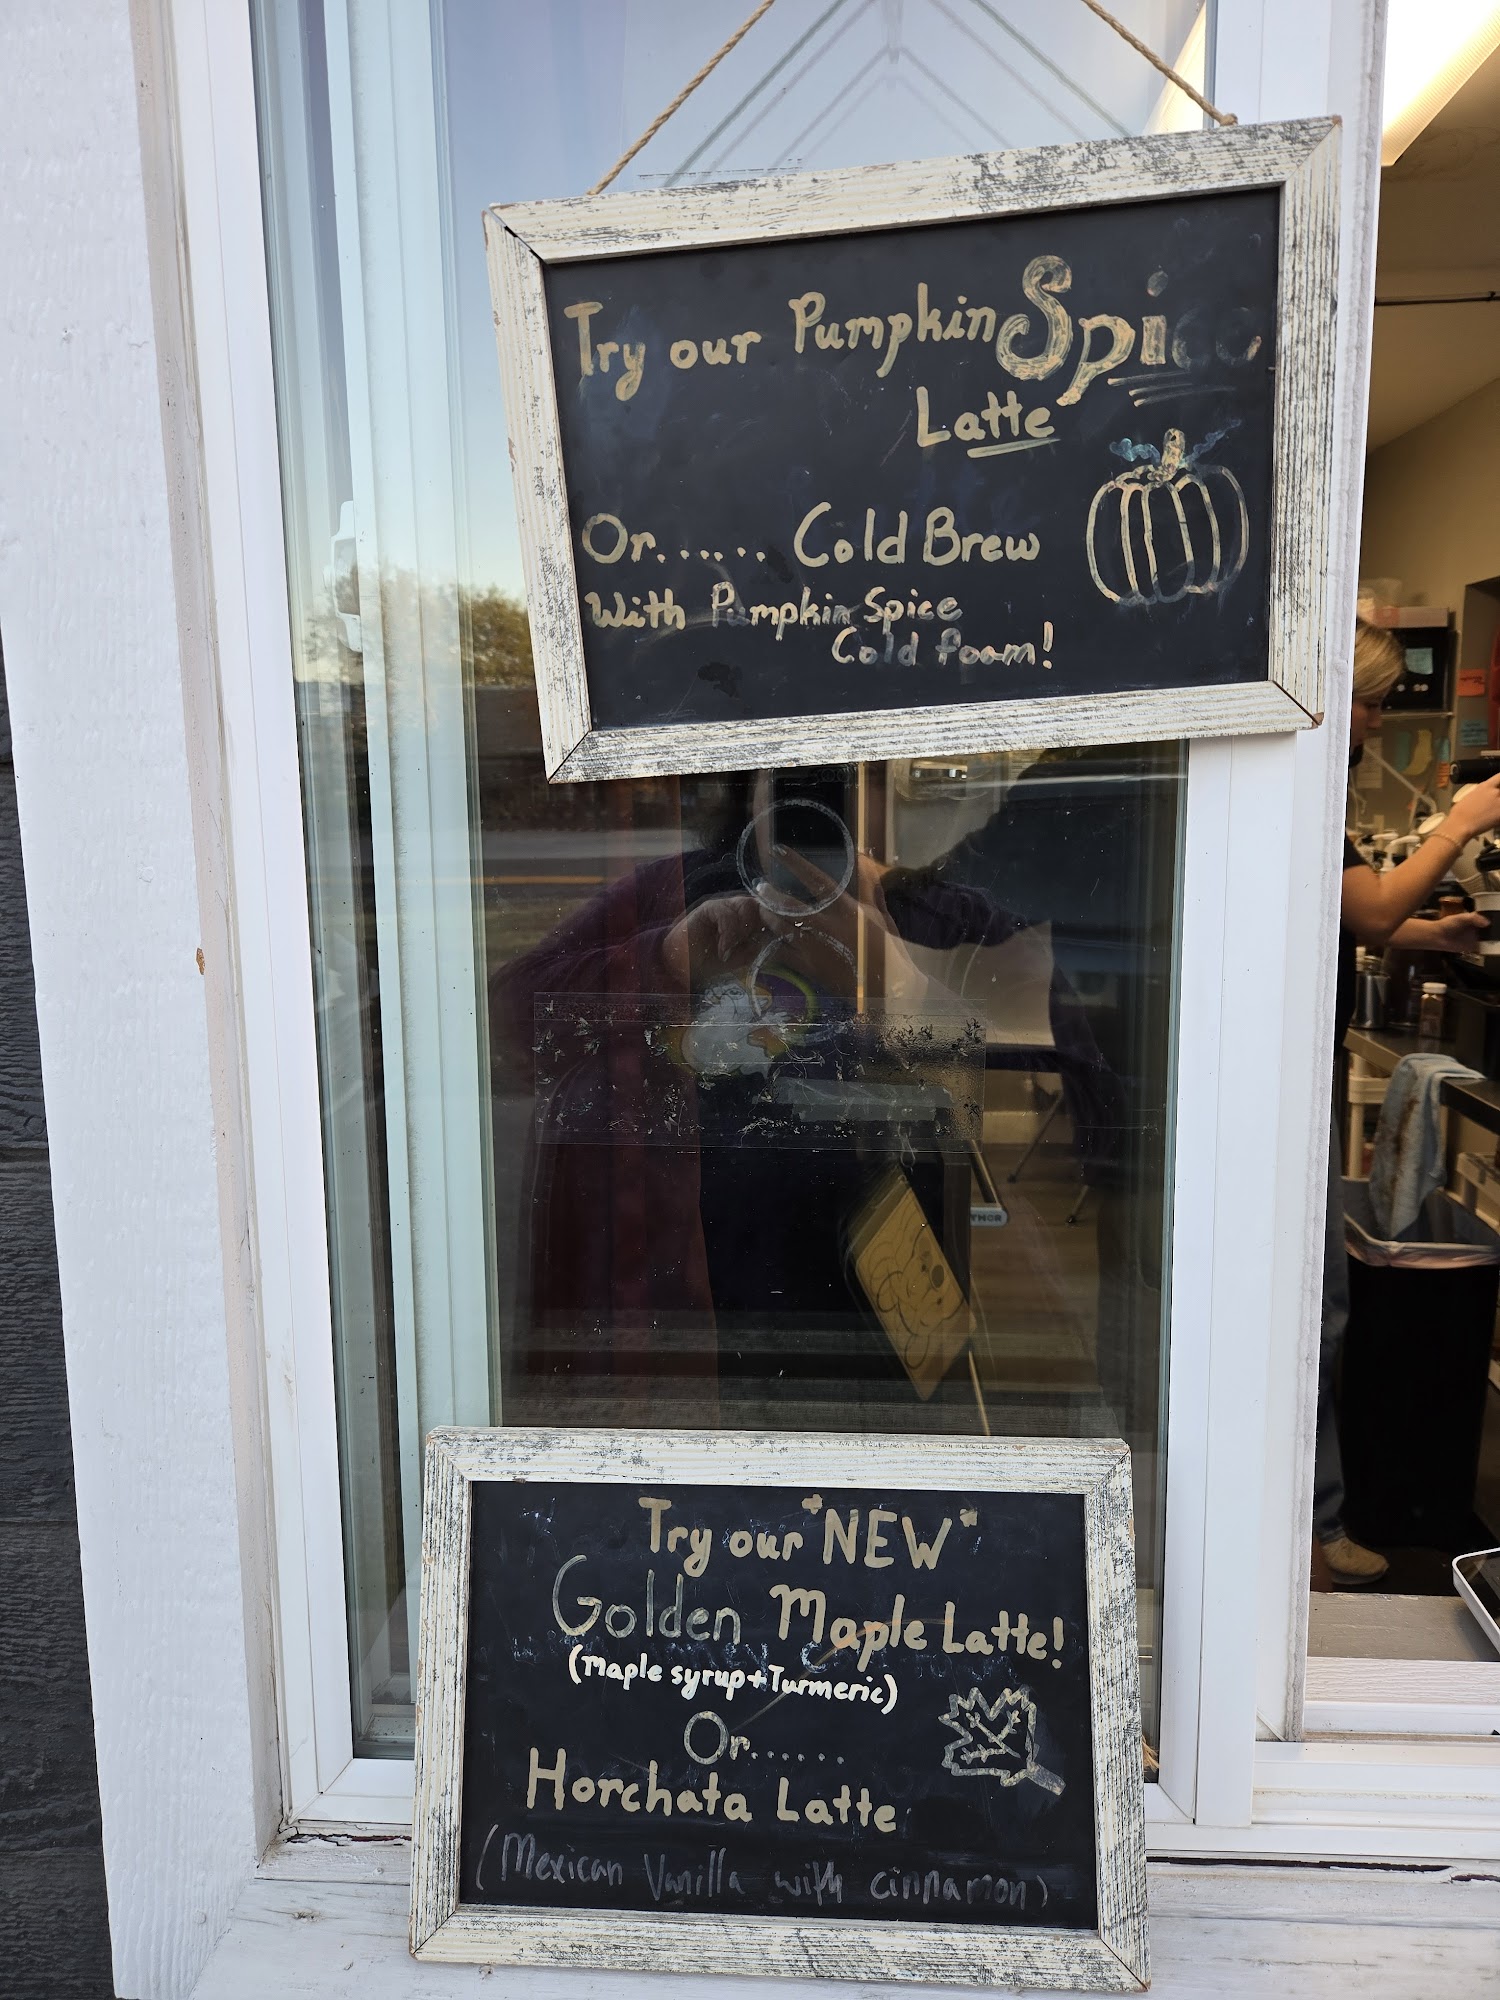 Try our Pumpkin Spice
Latte
Or...... Cold Brew
With Pumpkin Spice
Cold foam!
THOR
Try our "NEW"
Golden Maple Latte!
(Maple syrup+Turmeric)
Or......
Horchata Latte
(Mexican Vanilla with cinnamon)